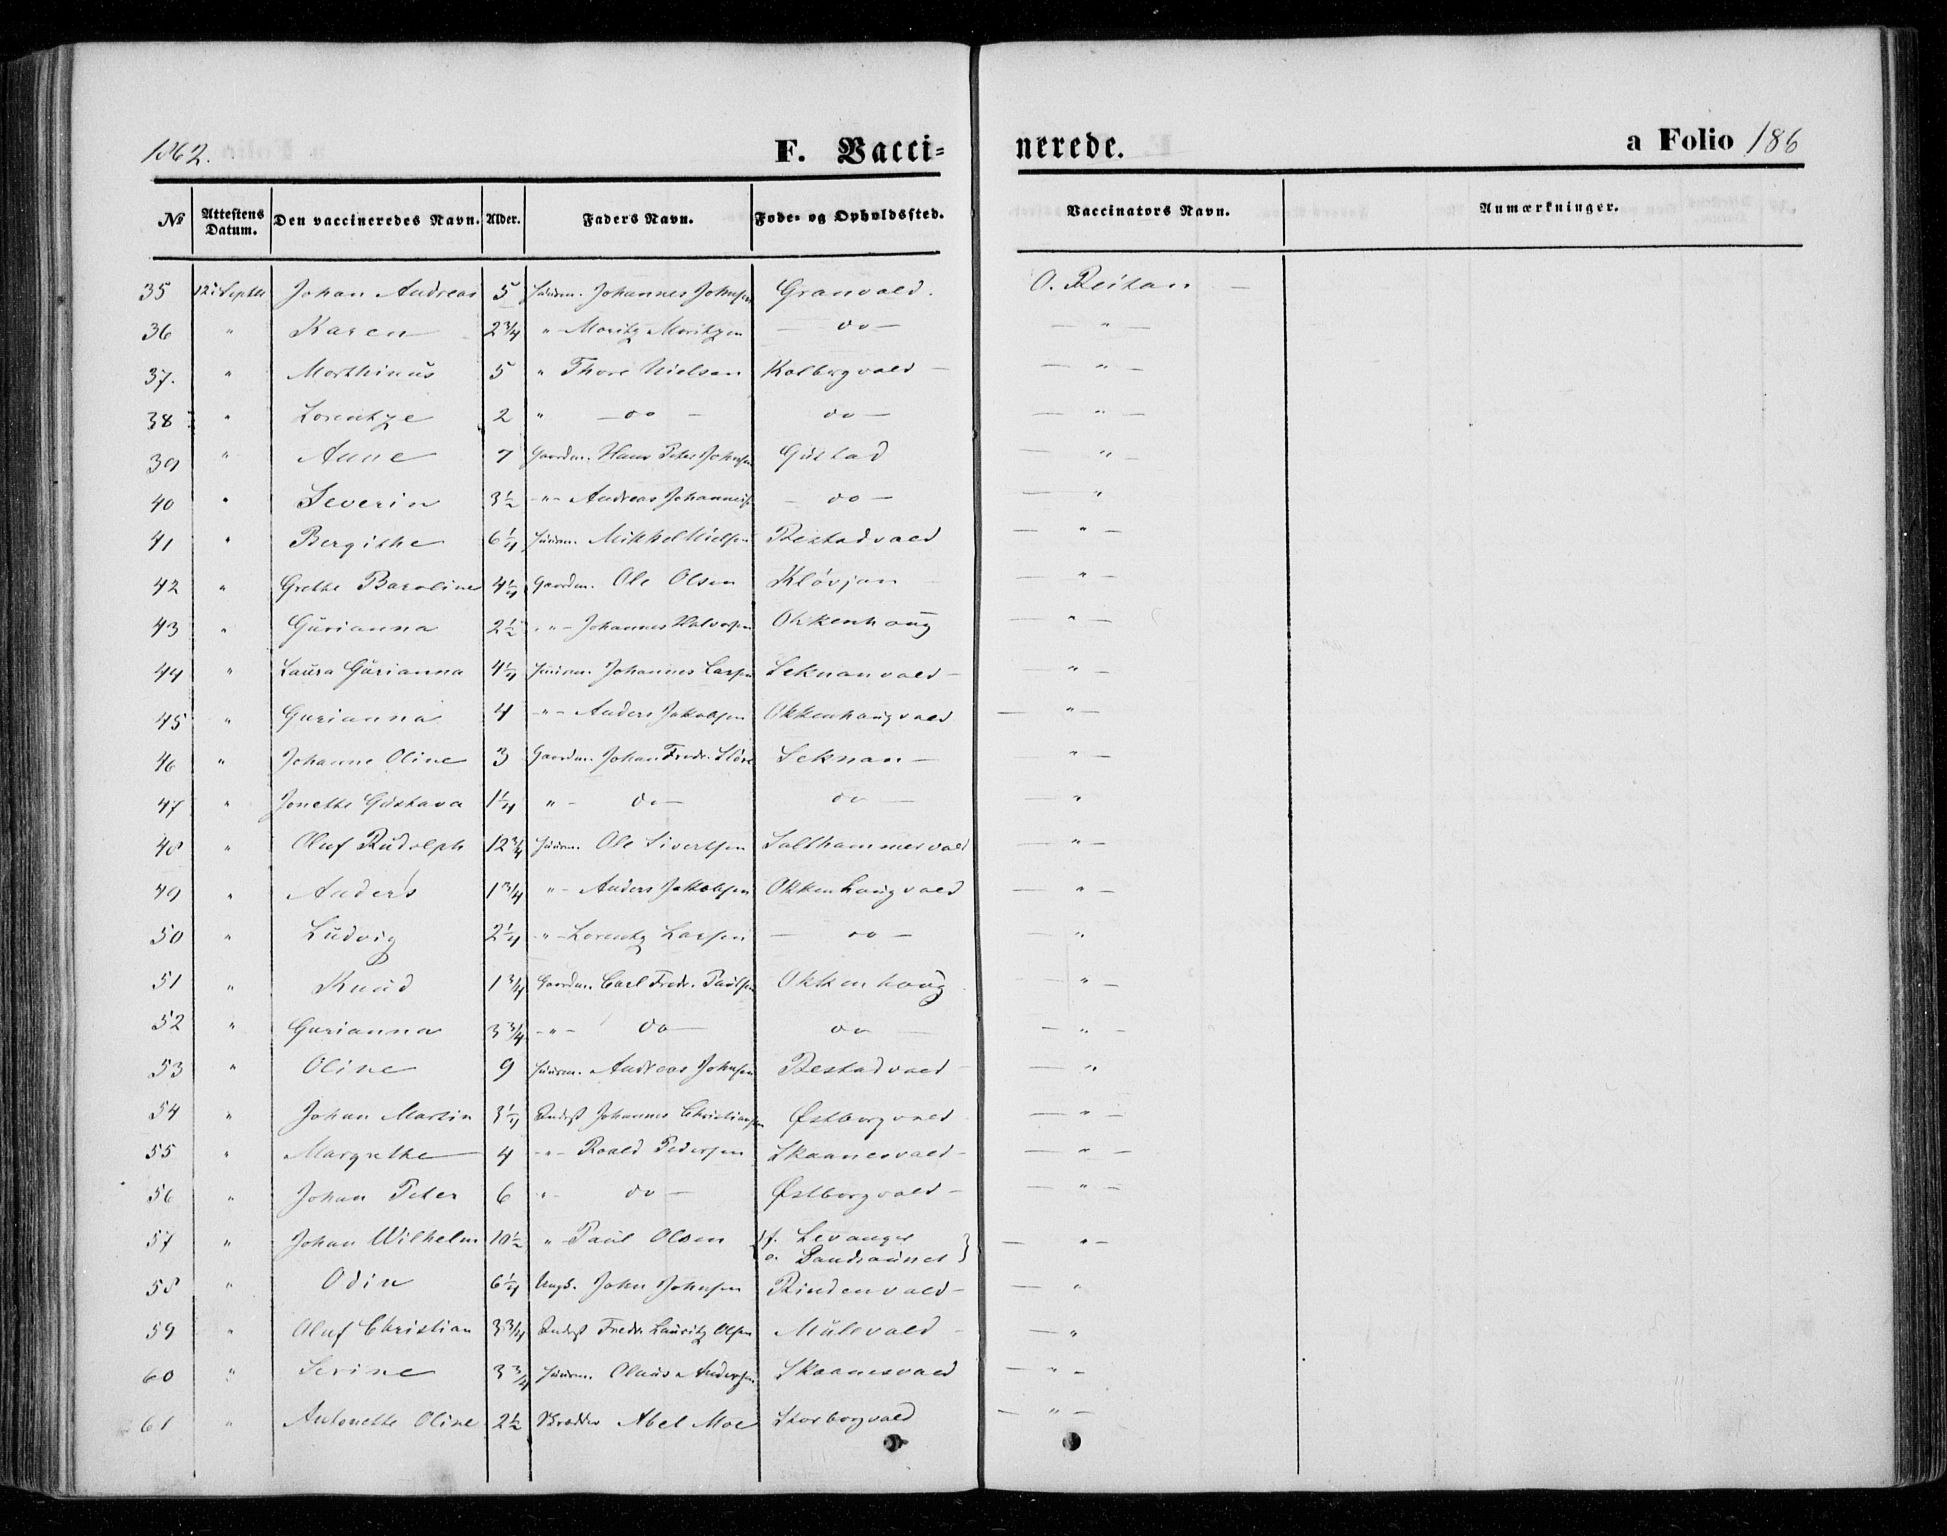 1862. F. Vacci= nerede. a Folio 186
№ Attestens Datum. Den vaccineredes Navn. Alder. Faders Navn. Føde- og Opholdssted. Vaccinators Navn. Anmærkninger.
35 12 Septbr Johan Andreas 5 Huusm. Johannes Johnsen Granvald. O. Reitan —
36 " Karen 2 3/4 " Moritz Moritzen — do — — " —
37. " Morthinus 5 " Thore Nielsen Kolbergvald — — " —
38 " Lorentze 2 " — do — do — — " —
39 " Anne 7 Gaardm. Hans Peter Johnsen Gustad — " —
40 " Severin 3 1/2 — " — Andreas Johannes — do — — "
41 " Bergithe 6 1/4 Huusm. Mikkel Nielsen Restadvald — " —
42 " Grethe Baroline 4 1/4 Gaardm. Ole Olsen Kløvjan — " —
43 " Gurianna 2 1/2 " — Johannes Halvorsen Okkenhaug — " —
44 " Laura Gurianna 4 1/4 Huusm. Johannes Larsen Seknanvald — — " —
45 " Gurianna 4 — " — Anders Jakobsen Okkenhaugvald — " —
46 " Johanne Oline 3 Gaardm. Johan Fredr. Støre Seknan — — " —
47 " Jonette Gustava 1 1/4 " — do — do — — "
48 " Oluf Rudolph 12 3/4 Huusm. Ole Sivertsen Salthammervald — " —
49 " Anders 1 3/4 " — Anders Jakobsen Okkenhaugvald — "
50 " Ludvig 2 1/4 " — Lorentz Larsen — do — — "
51 " Knud 1 3/4 Gaardm. Carl Fredr. Paulsen Okkenhaug — " —
52 " Gurianna 3 3/4 — " — do — do — — " —
53 " Oline 9 Huusm. Andreas Johnsen Restadvald — — "
54 " Johan Martin 3 1/4 Inderst Johannes Christiansen Østborgvald — " —
55 " Margrethe 4 — " — Roald Pedersen Skaanesvald — — " —
56 " Johan Peter 6 " — do — Østborgvald — — " —
57 " Johan Wilhelm 10 1/2 " Paul Olsen { f. Levanger — " —
o. Sandsaunet }
58 " Odin 6 1/4 Ungk. John Johnsen Rindenvald — — "
59 " Oluf Christian 3 3/4 Inderst Fredr. Lauritz Olsen Mulevald — — "
60 " Serine 3 3/4 Huusm. Olaus Andersen Skaanesvald — " —
61 " Antonette Oline 2 1/2 Abel Moe Storborgvald — " —